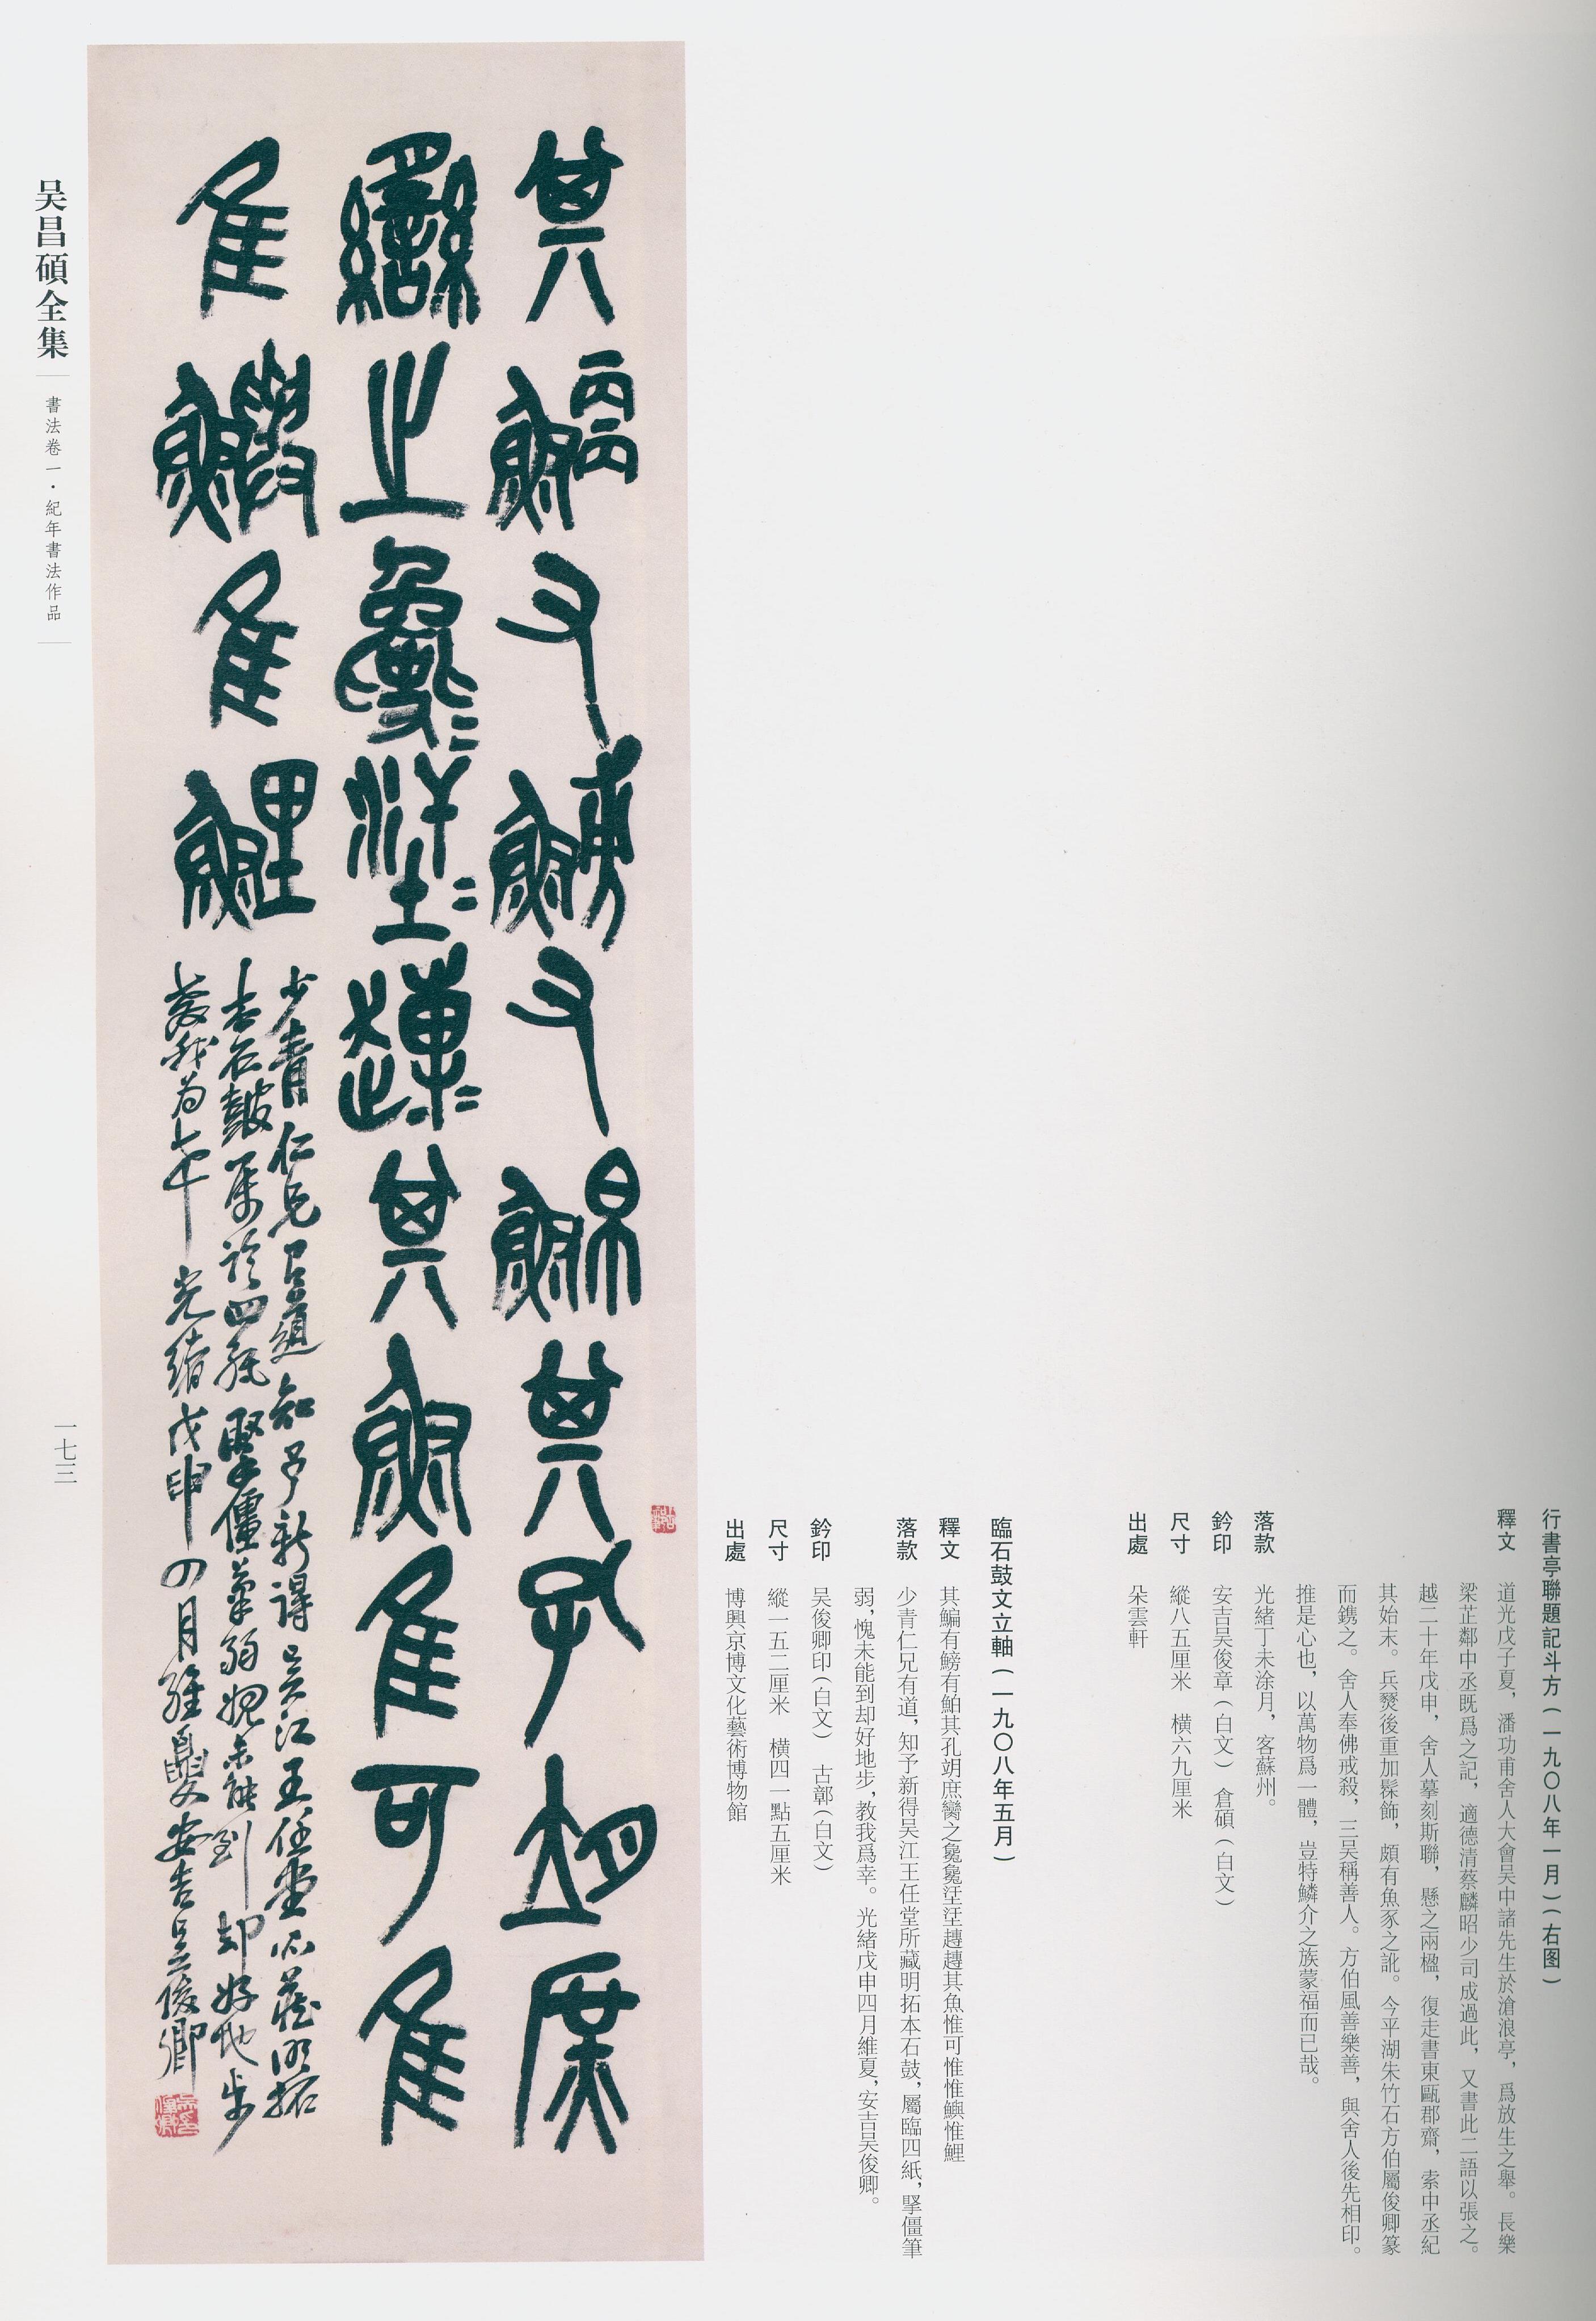 行書亭聯題記斗方(一九〇八年一月)(右图)
釋文 道光戊子夏,潘功甫舍人大會吴中諸先生於滄浪亭,爲放生之舉。長樂
梁芷鄰中丞既爲之記,適德清蔡麟昭少司成過此,又書此二語以張之。
越二十年戊申,舍人摹刻斯聯,懸之兩楹,復走書東甌郡齋,索中丞紀
其始末。兵燹後重加髹飾,頗有魚豕之訛。今平湖朱竹石方伯屬俊卿篆
而鐫之。舍人奉佛戒殺,三吴稱善人。方伯風善樂善,與舍人後先相印。
推是心也,以萬物爲一體,豈特鱗介之族蒙福而已哉。
落款 光緒丁未涂月,客蘇州。
鈐印 安吉吴俊章(白文) 倉碩(白文)
尺寸 縱八五厘米 横六九厘米
出處 朵雲軒
臨石鼓文立軸(一九〇八年五月)
釋文 其鯿有鰟有鮊其孔胡庶臠之毚毚汪汪趞趞其魚惟可惟惟鱮惟鯉
落款 少青仁兄有道,知予新得吴江王任堂所藏明拓本石鼓,屬臨四紙,掔僵筆
弱,愧未能到却好地步,教我爲幸。光緒戊申四月維夏,安吉吴俊卿。
鈐印 吴俊卿印(白文) 古鄣(白文)
尺寸 縱一五二厘米 横四一點五厘米
出處 博興京博文化藝術博物館
其鯿又鰟又鮊其孔庶
臠之毚=汪=趞=其魚隹可隹
隹鱮隹鯉
少青仁兄有道知予新得吴江王任堂所藏明拓
本石鼓屬臨四紙掔僵筆弱愧未能到却好地步
教我为幸 光緒戊申四月維夏安吉吴俊卿
古鄣
吴俊卿印
吴昌碩全集
書法卷一·紀年書法作品
一七三